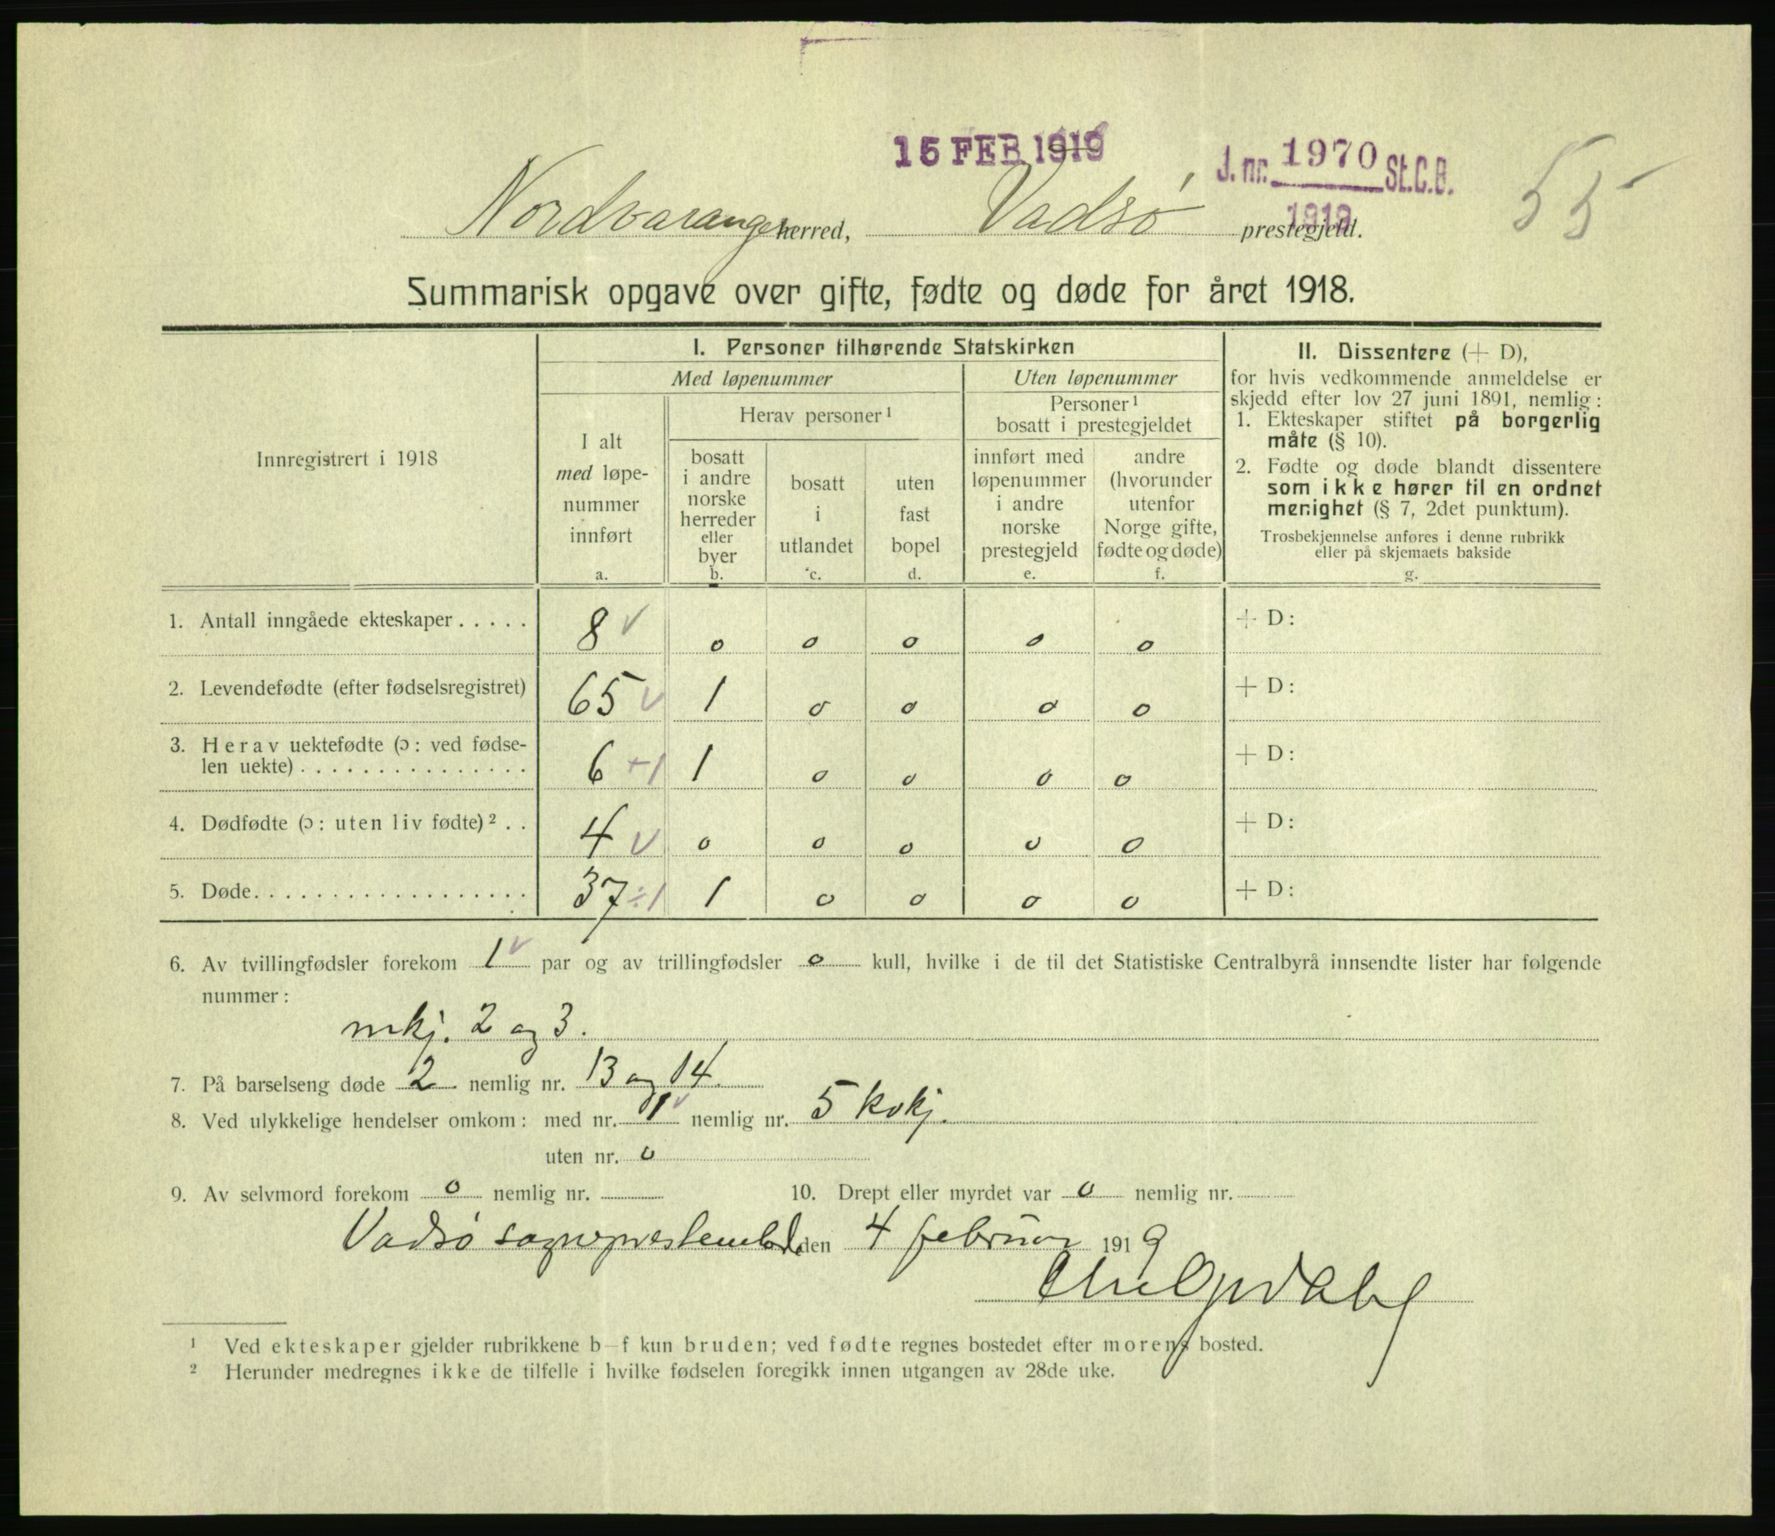 15 FEB 1919
J. nr. 1970 St.C.B.
1919
55
Nordvaranger herred, Vadsø prestegjeld.
Summarisk opgave over gifte, fødte og døde for året 1918.
Innregistrert i 1918
I. Personer tilhørende Statskirken
Med løpenummer
Uten løpenummer
I alt
med løpe-
nummer
innført
a.
Herav personer¹
bosatt
i andre
norske
herreder
eller
byer
b.
bosatt
i
utlandet
c.
uten
fast
bopel
d.
Personer¹
bosatt i prestegjeldet
innført med
løpenummer
i andre
norske
prestegjeld
e.
andre
(hvorunder
utenfor
Norge gifte,
fødte og døde)
f.
II. Dissentere (+ D),
for hvis vedkommende anmeldelse er
skjedd efter lov 27 juni 1891, nemlig:
1. Ekteskaper stiftet på borgerlig
måte (§ 10).
2. Fødte og døde blandt dissentere
som ikke hører til en ordnet
menighet (§ 7, 2det punktum).
Trosbekjennelse anføres i denne rubrikk
eller på skjemaets bakside
g.
1. Antall inngåede ekteskaper..... 8 v o o o o o + D:
2. Levendefødte (efter fødselsregistret) 65 v 1 o o o o + D:
3. Herav uektefødte (ɔ: ved fødse-
len uekte)............... 6 +1 1 o o o o + D:
4. Dødfødte (ɔ: uten liv fødte)².. 4 v o o o o o + D:
5. Døde.................. 37 ÷1 1 o o o o + D:
6. Av tvillingfødsler forekom 1 v par og av trillingfødsler o kull, hvilke i de til det Statistiske Centralbyrå innsendte lister har følgende
nummer:
mkj. 2 og 3.
7. På barselseng døde 2 nemlig nr. 13 og 14.
8. Ved ulykkelige hendelser omkom: med nr. 1 v nemlig nr. 5 kvkj.
uten nr. o
9. Av selvmord forekom o nemlig nr.
10. Drept eller myrdet var o nemlig nr.
Vadsø sogneprestembed, den 4 februar 1919
Chr Opdahl
¹ Ved ekteskaper gjelder rubrikkene b–f kun bruden; ved fødte regnes bostedet efter morens bosted.
² Herunder medregnes ikke de tilfelle i hvilke fødselen foregikk innen utgangen av 28de uke.